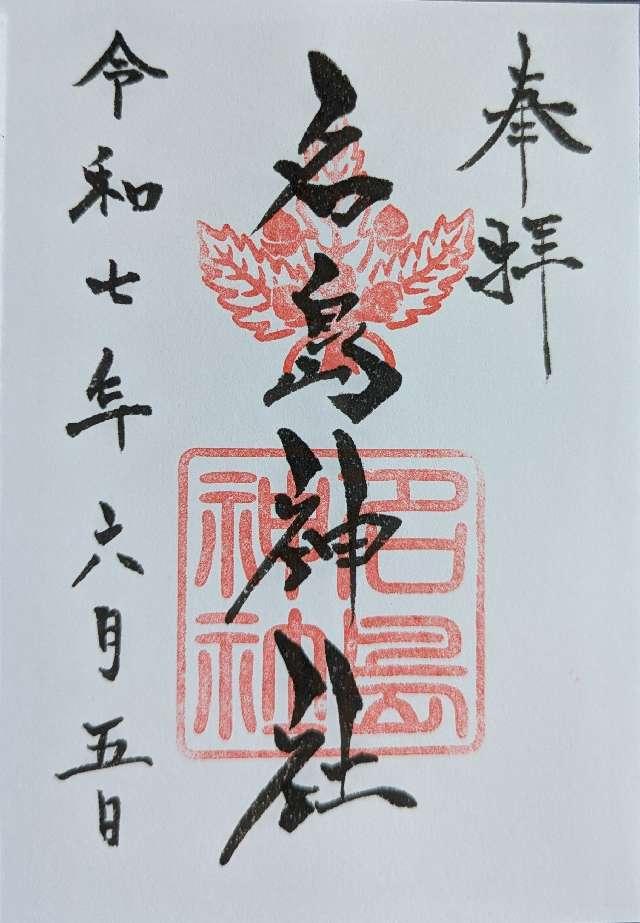 奉拝
名島神社
名島
神社
令和七年六月五日